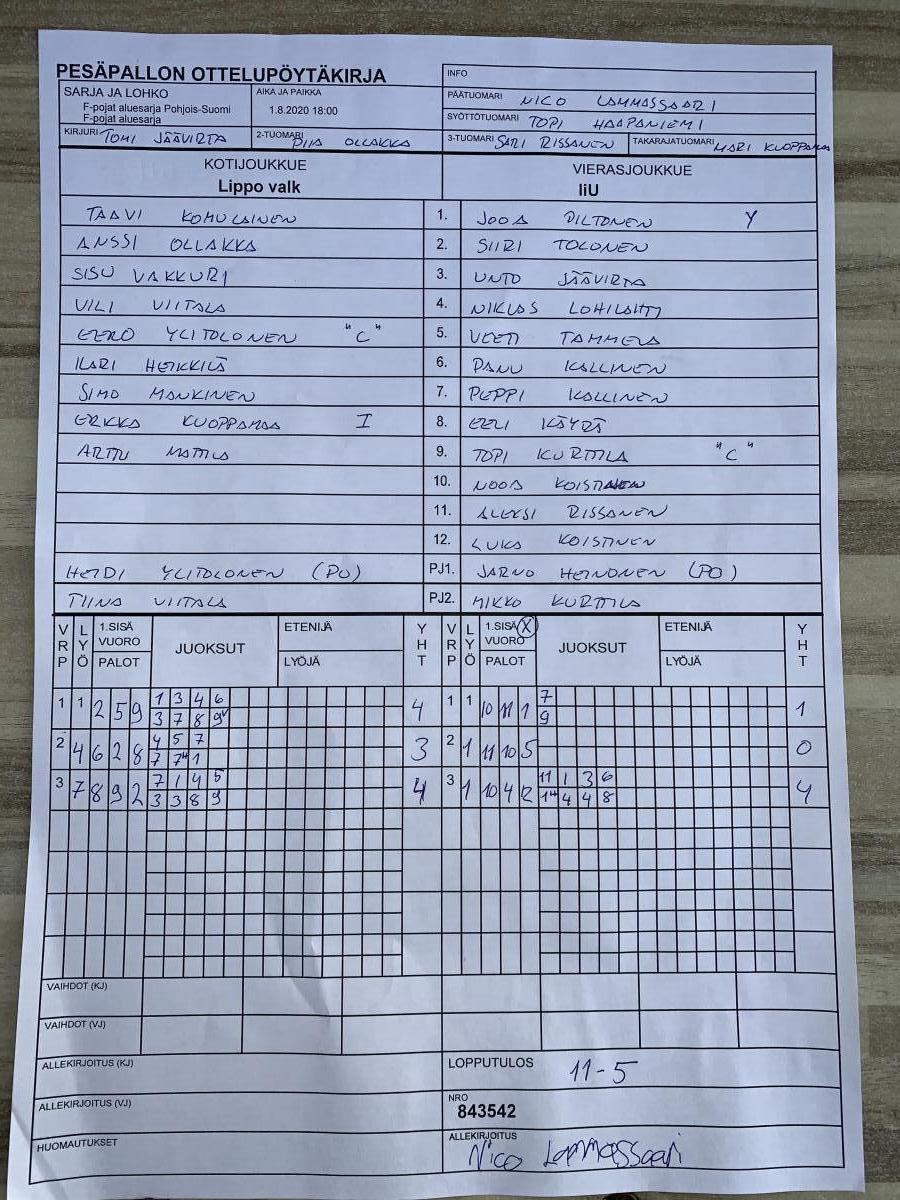 PESÄPALLON OTTELUPÖYTÄKIRJA
INFO
SARJA JA LOHKO
F-pojat aluesarja Pohjois-Suomi
F-pojat aluesarja
AIKA JA PAIKKA
1.8.2020 18:00
PÄÄTUOMARI NICO LAMMASSAARI
SYÖTTÖTUOMARI TOPI HAAPANIEMI
KIRJURI TOMI JÄÄVIRTA
2-TUOMARI PIIA OLLAKKA
3-TUOMARI SARI RISSANEN
TAKARAJATUOMARI MARI KUOPPAMAA
KOTIJOUKKUE
Lippo valk
VIERASJOUKKUE
IiU
TAAVI KOMULAINEN 1. JOOA PILTONEN Y
ANSSI OLLAKKA 2. SIIRI TOLONEN
SISU VAKKURI 3. UNTO JÄÄVIRTA
VILI VIITALA 4. NIKLAS LOHILAHTI
EERO YLITOLONEN "C" 5. VEETI TAMMELA
ILARI HEIKKILÄ 6. PANU KALLINEN
SIMO MANKINEN 7. PEPPI KALLINEN
ERKKA KUOPPAMAA I 8. EELI KÄYRÄ
ARTTU MATTILA 9. TOPI KURTTILA "C"
10. NOOA KOISTINEN
11. ALEKSI RISSANEN
12. LUKA KOISTINEN
HEIDI YLITOLONEN (PO) PJ1. JARNO HEINONEN (PO)
TIINA VIITALA PJ2. MIKKO KURTTILA
VRP LYÖ 1.SISÄ VUORO PALOT JUOKSUT ETENIJÄ LYÖJÄ YHT VRP LYÖ 1.SISÄ X VUORO PALOT JUOKSUT ETENIJÄ LYÖJÄ YHT
1 3 4 6 7
1 1 2 5 9 4 1 1 10 11 1 1
3 7 8 9 9
4 5 7
2 4 6 2 8 3 2 1 11 10 5 0
7 7 1
7 1 4 5 11 1 3 6
3 7 8 9 2 4 3 1 10 4 12 4
3 3 8 9 1 4 4 8
VAIHDOT (KJ)
VAIHDOT (VJ)
ALLEKIRJOITUS (KJ)
LOPPUTULOS 11-5
ALLEKIRJOITUS (VJ)
NRO
843542
HUOMAUTUKSET
ALLEKIRJOITUS
Nico Lammassaari